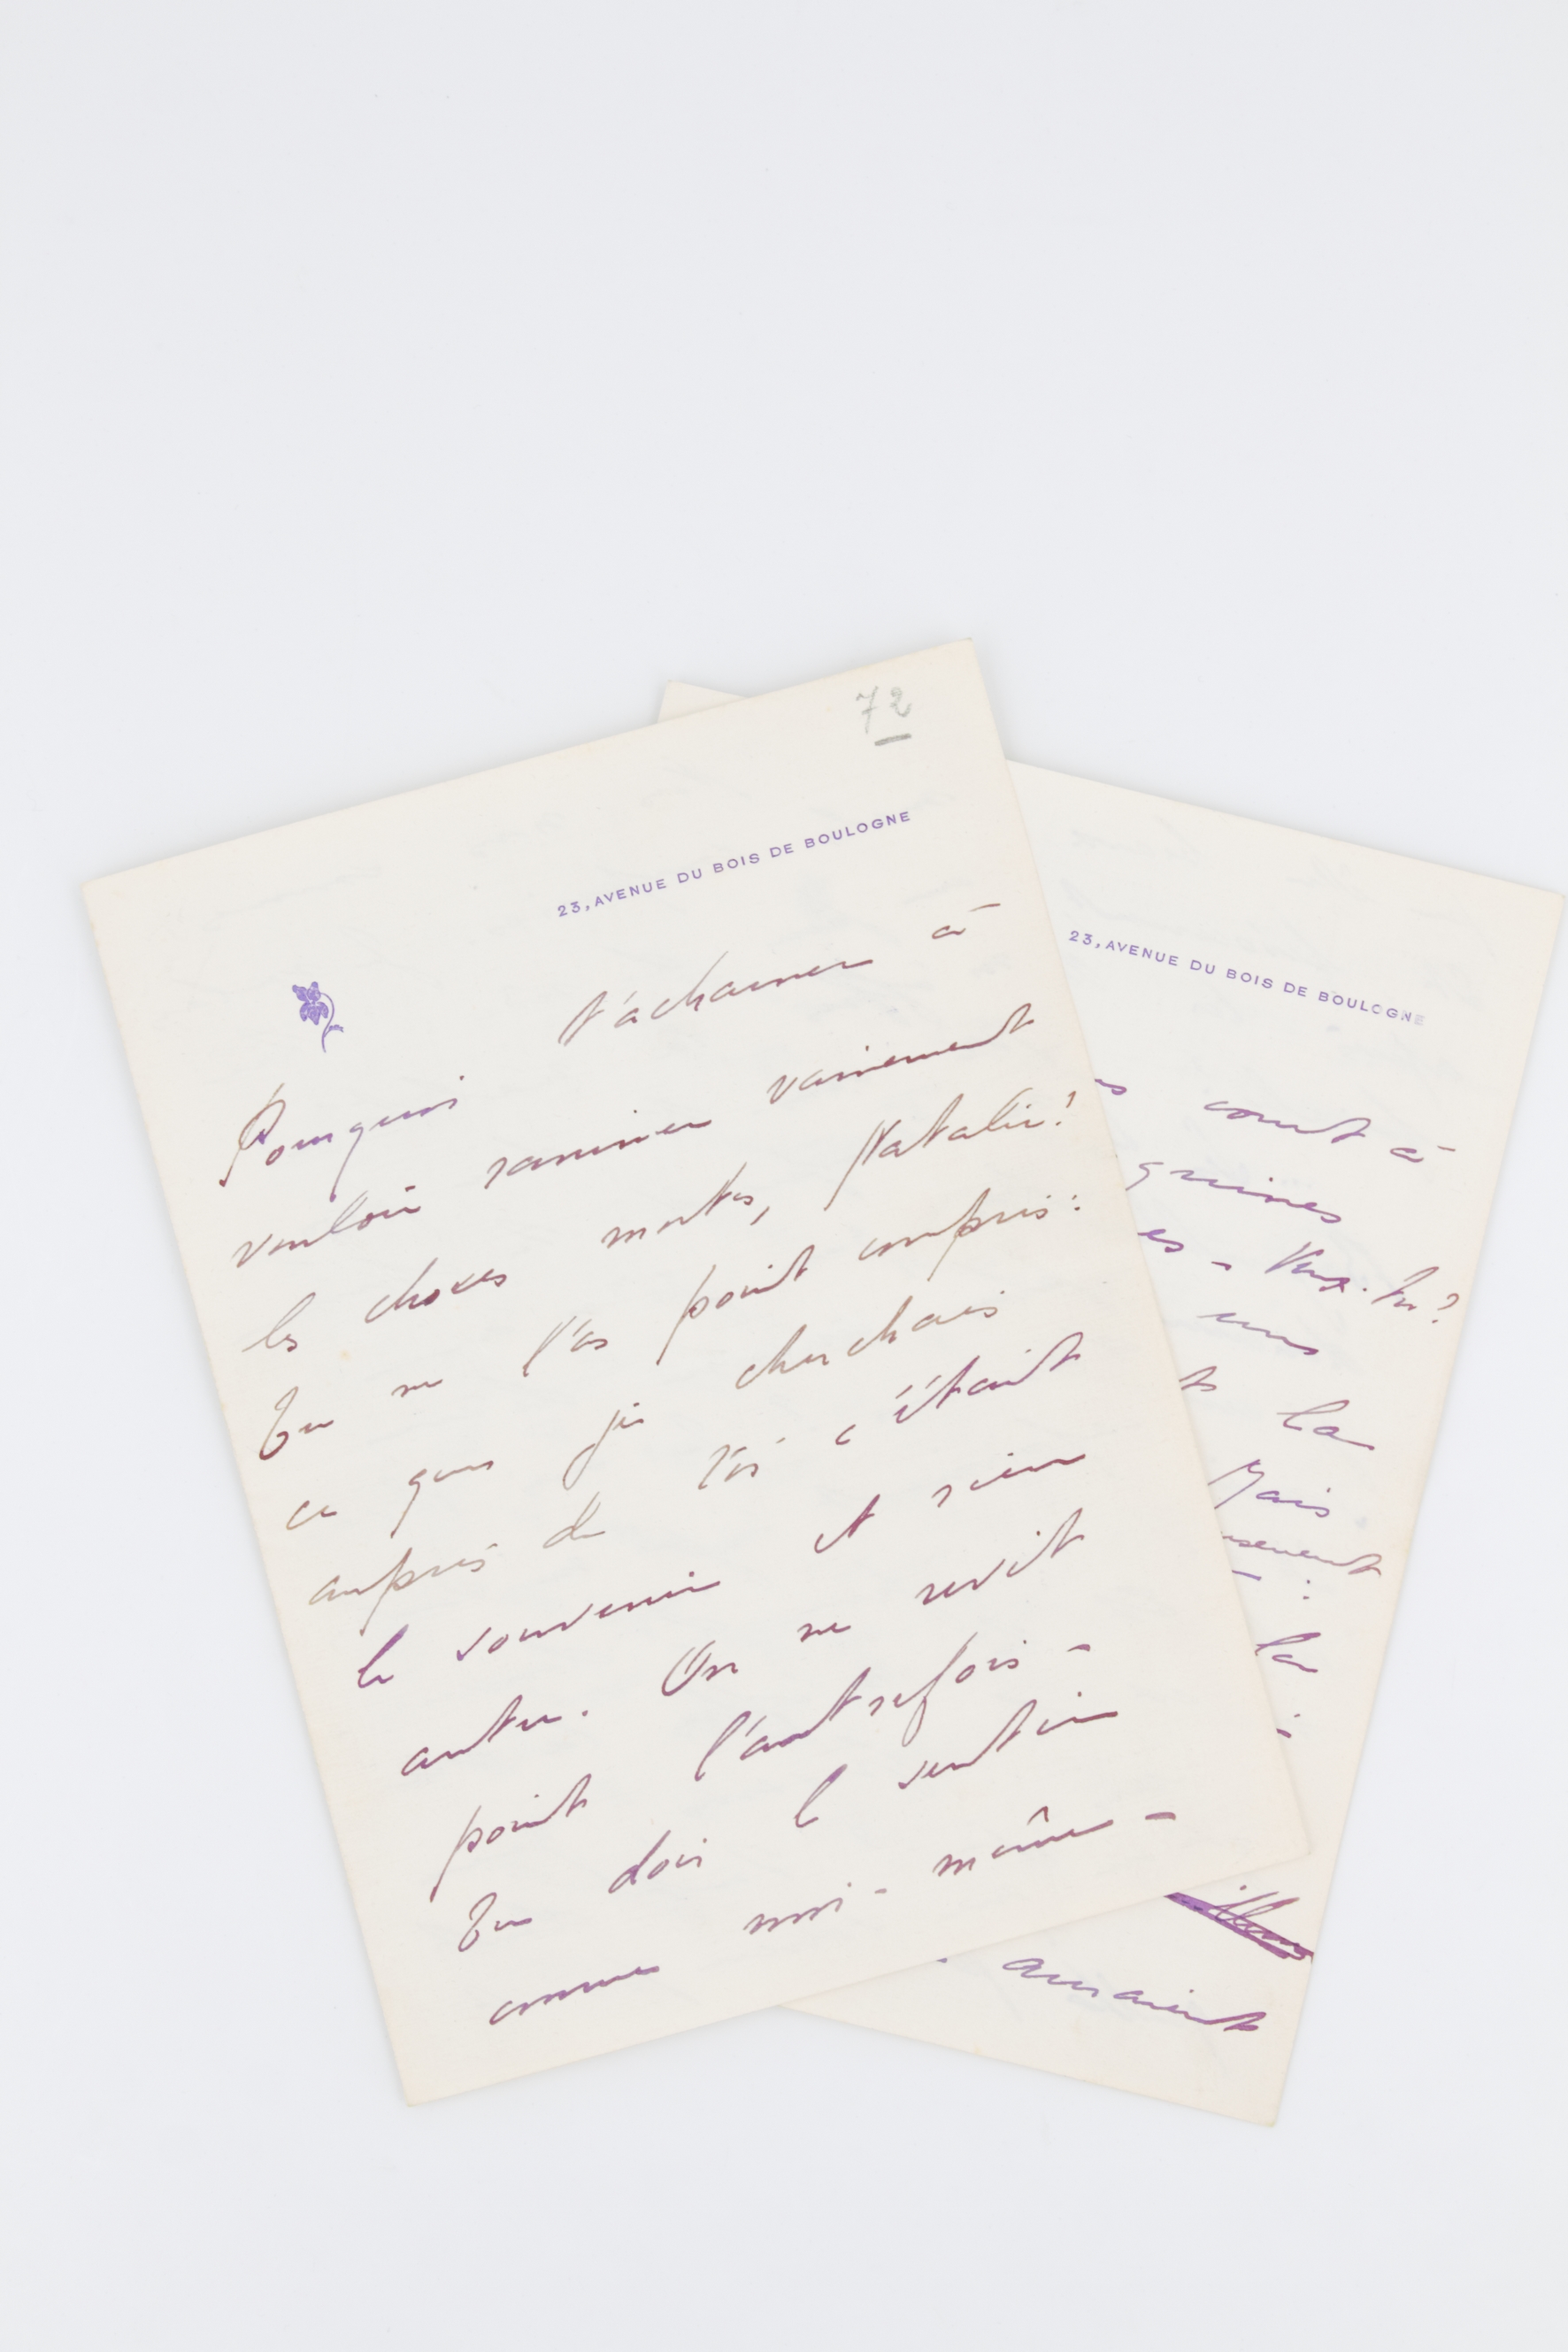 72
23, AVENUE DU BOIS DE BOULOGNE
Pourquoi t'acharner à
vouloir ranimer vainement
les choses mortes, Natalie?
Tu ne l'as point compris:
ce que je cherchais
auprès de toi c'était
le souvenir et rien
autre. On ne revit
point l'autrefois -
Tu dois le sentir
comme moi-même -
23, AVENUE DU BOIS DE BOULOGNE
court à
es - Veux-tu?
la
Mais
la
auraient